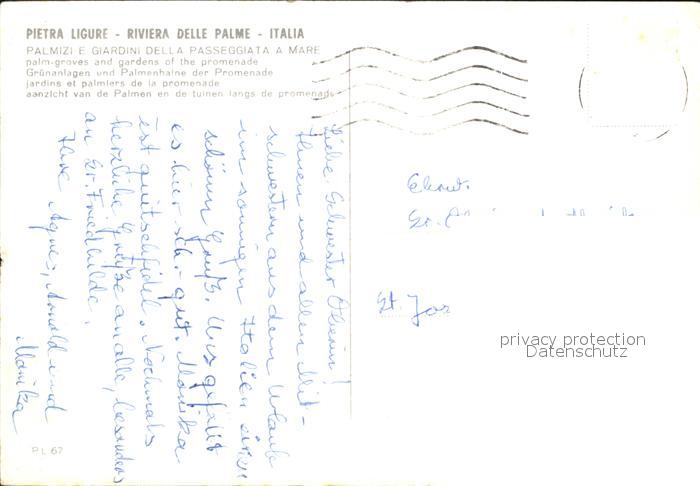 PIETRA LIGURE - RIVIERA DELLE PALME - ITALIA
PALMIZI E GIARDINI DELLA PASSEGGIATA A MARE
palm-groves and gardens of the promenade
Grünanlagen und Palmenhaine der Promenade
jardins et palmiers de la promenade
aanzicht van de Palmen en de tuinen langs de promenade
Liebe Schwester Oberin!
Ihnen und allen Mit-
schwestern aus dem Urlaub
im sonnigen Italien einen
schönen Gruß. Uns gefällt
es hier sehr gut. Monika
ist quitschfidel. Nochmals
herzliche Grüße an alle, besonders
an Sr. Friedhilde.
Ihre Agnes, Arnold und
Monika
Ehrw.
Sr.
St. Jos
privacy protection
Datenschutz
PL 67